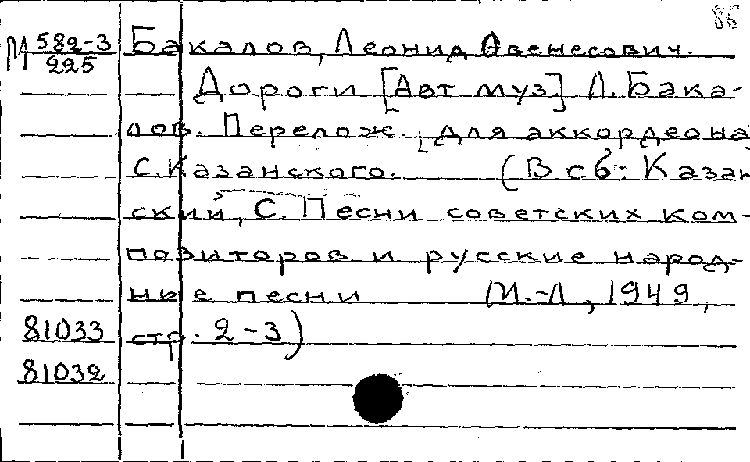 86
М 582-3 Бакалов, Леонид Ованесович.
225
Дороги [Авт муз] Л. Бака-
лов. Перелож. для аккордеона
С. Казанского. (В сб: Казан
ский, С. Песни советских ком-
позиторов и русские народ-
ные песни (М.-Л, 1949,
81033 стр. 2-3)
81032